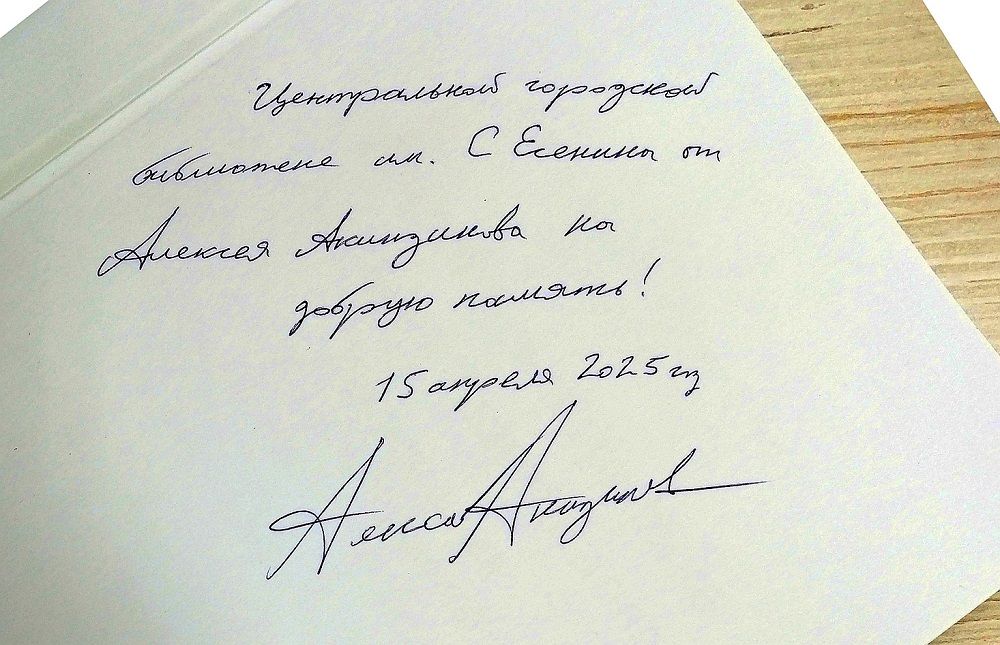 Центральной городской
библиотеке им. С Есенина от
Алексея Акиндинова на
добрую память!
15 апреля 2025 г